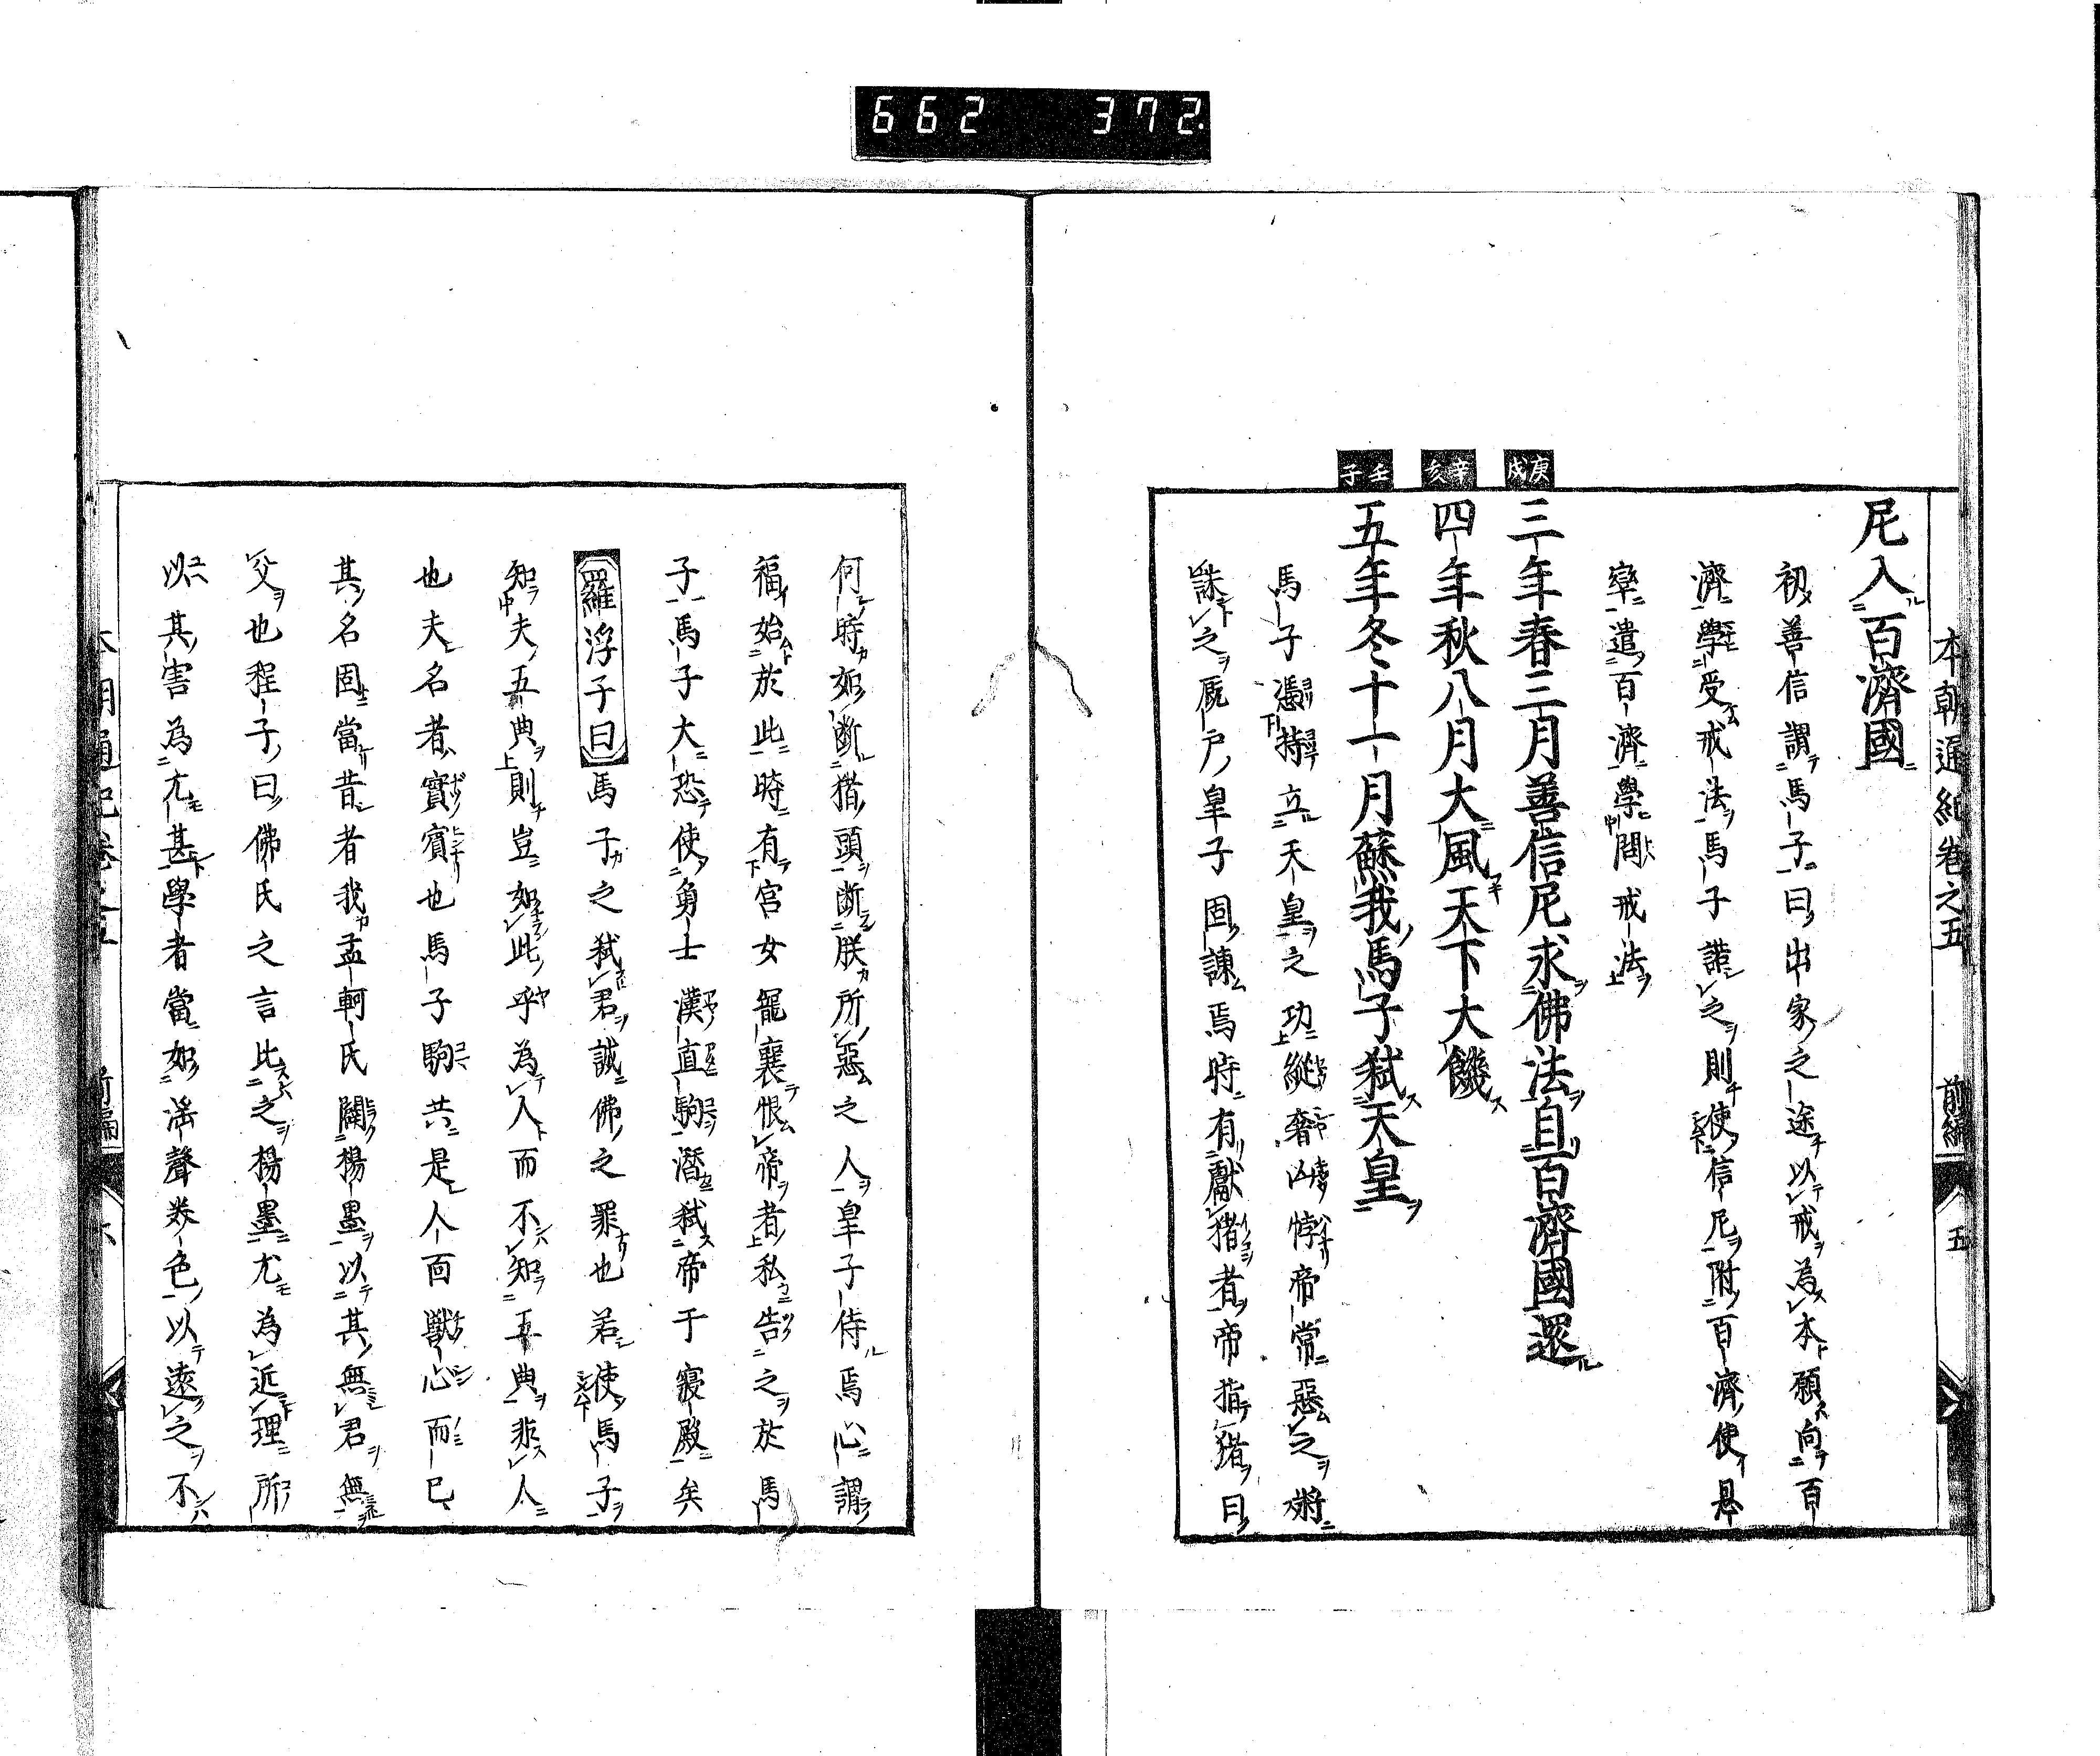 662 372
本朝通紀卷之五 前編 五
尼入百濟國
初善信謂馬子曰出家之途以戒為本願向百
濟學受戒法馬子諾之則使信尼附百濟使恩
率遣百濟學問戒法
庚戌
三年春三月善信尼求佛法自百濟國還
辛亥
四年秋八月大風天下大饑
壬子
五年冬十一月蘇我馬子弑天皇
馬子憑持立天皇之功縱奢凶悖帝常惡之將
誅之厩戸皇子固諫焉時有獻猪者帝指猪曰
何時如斷猪頭斷朕所惡之人皇子侍焉心謂
福始於此時有宮女寵襄恨帝者私告之於馬
子馬子大恐使勇士漢直駒潛弑帝于寢殿矣
羅浮子曰馬子之弑君誠佛之罪也若使馬子
知夫五典則豈如此乎為人而不知五典非人
也夫名者實賓也馬子駒共是人面獸心而已
其名固當昔者我孟軻氏闢楊墨以其無君無
父也程子曰佛氏之言比之楊墨尤為近理所
以其害為尤甚學者當如淫聲美色以遠之不
本朝通紀卷之五 前編 六